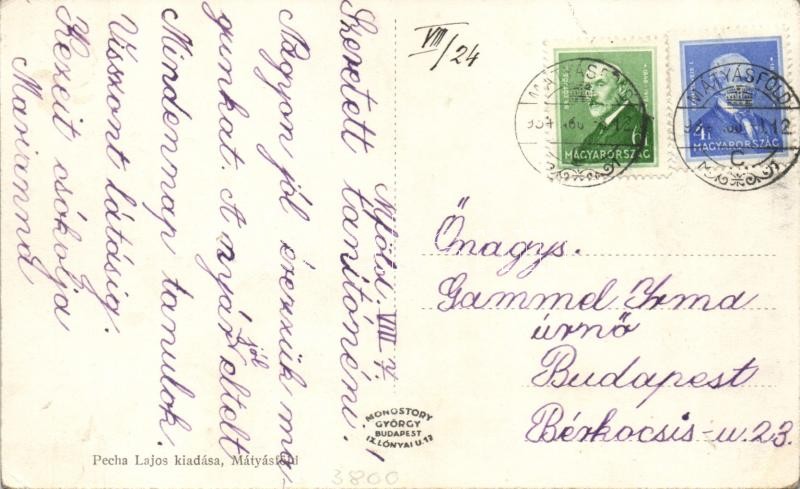 Mföld. VIII 7.
Szeretett tanítónéni!
Nagyon jól érezzük ma-
gunkat. A nyár jól eltelt
Mindennap tanulok.
Viszont látásig.
Kezeit csókolja
Marianna
VIII/24
MÁTYÁSFÖLD
6f
MAGYARORSZÁG
MÁTYÁSFÖLD
C
4f
MAGYARORSZÁG
Őnagys.
Gammel Irma
úrnő
Budapest
Bérkocsis-u. 23.
MONOSTORY
GYÖRGY
BUDAPEST
IX. LÓNYAI U. 13
Pecha Lajos kiadása, Mátyásföld
3800